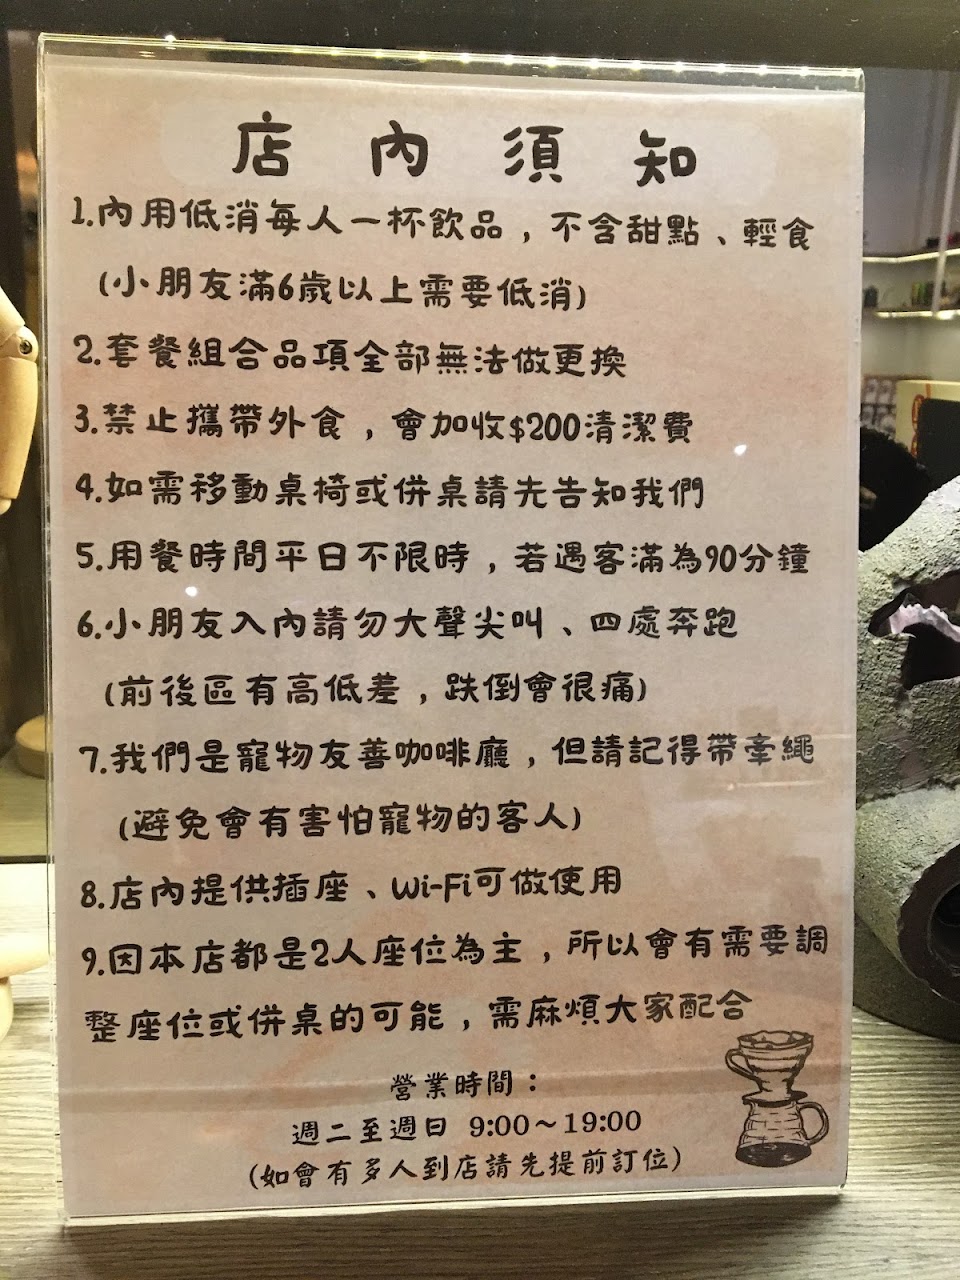 店內須知
1.內用低消每人一杯飲品，不含甜點、輕食
(小朋友滿6歲以上需要低消)
2.套餐組合品項全部無法做更換
3.禁止攜帶外食，會加收$200清潔費
4.如需移動桌椅或併桌請先告知我們
5.用餐時間平日不限時，若遇客滿為90分鐘
6.小朋友入內請勿大聲尖叫、四處奔跑
(前後區有高低差，跌倒會很痛)
7.我們是寵物友善咖啡廳，但請記得帶牽繩
(避免會有害怕寵物的客人)
8.店內提供插座、Wi-Fi可做使用
9.因本店都是2人座位為主，所以會有需要調
整座位或併桌的可能，需麻煩大家配合
營業時間：
週二至週日 9:00～19:00
(如會有多人到店請先提前訂位)